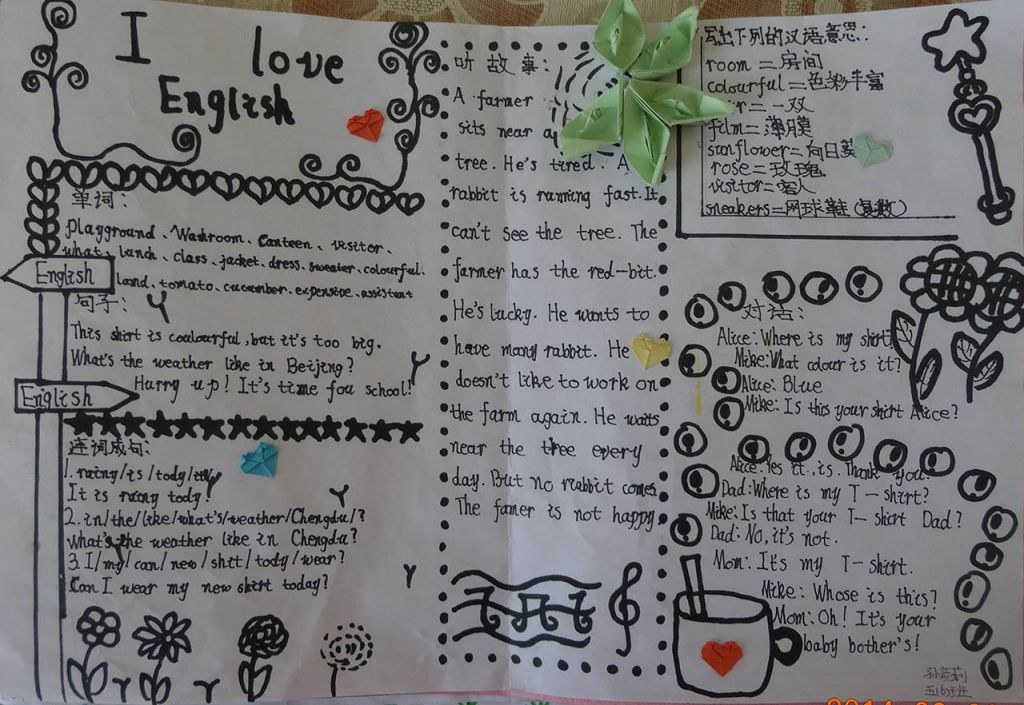 I love
English
单词:
playground、Washroom、Canteen、visitor、
what、lanch、class、jacket、dress、sweater、colourful、
land、tomato、cucumber、expensive、assistant
English
句子:
This shirt is coulourful, but it's too big.
What's the weather like in Beijing?
Hurry up! It's time fou school!
English
连词成句:
1. rainy/is/tody/
It is rainy tody!
2. in/the/like/what's/weather/Chengdu/?
what's the weather like in Chengdu?
3. I/my/can/new/shtt/tody/wear?
Can I wear my new shirt today?
听故事:
A farmer
sits near a
tree. He's tired. A
rabbit is running fast. It
can't see the tree. The
farmer has the red-bit.
He's lucky. He wants to
have many rabbit. He
doesn't like to work on
the farm again. He waits
near the tree every
day. But no rabbit comes
The famer is not happy
写出下列的汉语意思:
room=房间
colourful=色彩丰富
=一双
film=薄膜
sunflower=向日葵
rose=玫瑰
visitor=客人
sneakers=网球鞋(复数)
对话:
Alice: Where is my shirt
Mike: What colour is it?
Alice: Blue
Mike: Is this your shirt Alice?
Alice: Yes it, is. Thank you.
Dad: Where is my T-shirt?
Mike: Is that your T-shirt Dad?
Dad: NO, it's not.
Mom: It's my T-shirt.
Mike: Whose is this?
Mom: Oh! It's your
baby bother's!